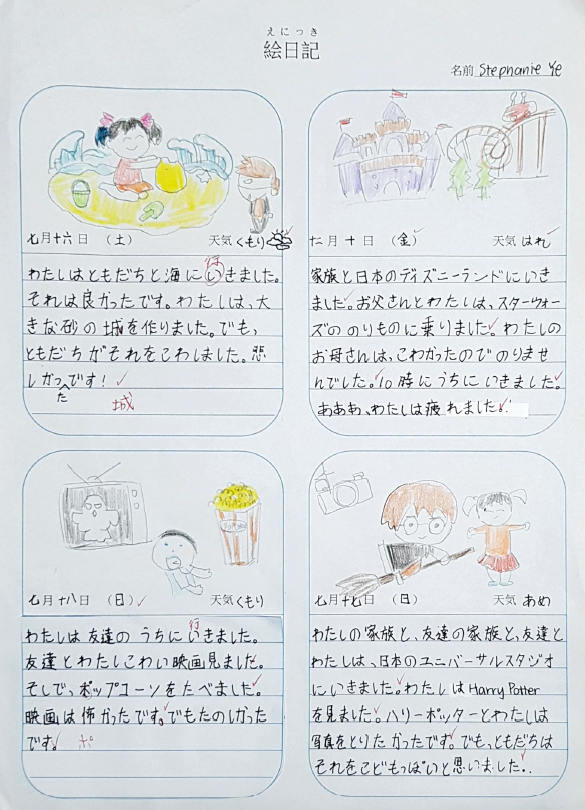 えにっき
絵日記
名前 Stephanie Ye
七月十六日 (土) 天気 くもり
行
わたしはともだちと海にいきました。
それは良かったです。わたしは、大
きな砂の城を作りました。でも、
ともだちがそれをこわしました。悲
しかっです!
た
城
十二月十日 (金) 天気 はれ
家族と日本のディズニーランドにいき
ました。お父さんとわたしは、スターウォー
ズののりものに乗りました。わたしの
お母さんは、こわかったのでのりませ
んでした。10時にうちにいきました。
あああ、わたしは疲れました。
七月十八日 (日) 天気 くもり
行
わたしは友達のうちにいきました。
友達とわたしこわい映画見ました。
そしで、ポップコーソをたべました。
映画は怖かったです。でもたのしかった
です。
ポ
七月十七日 (日) 天気 あめ
わたしの家族と、友達の家族と、友達と
わたしは、日本のユニバーサルスタジオ
にいきました。わたしはHarry Potter
を見ました。ハリーポッターとわたしは
写真をとりたかったです。でもっともだちは
それをこどもっぽいと思いました。